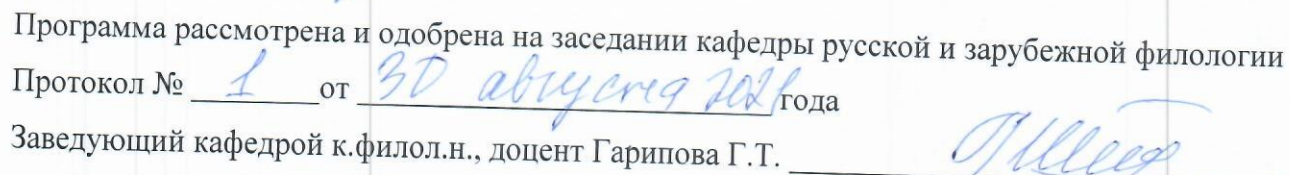 Программа рассмотрена и одобрена на заседании кафедры русской и зарубежной филологии
Протокол № 1 от 30 августа 2021 года
Заведующий кафедрой к.филол.н., доцент Гарипова Г.Т.